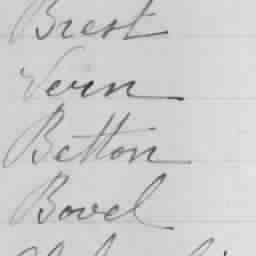 Brest
Vern
Betton
Bovel